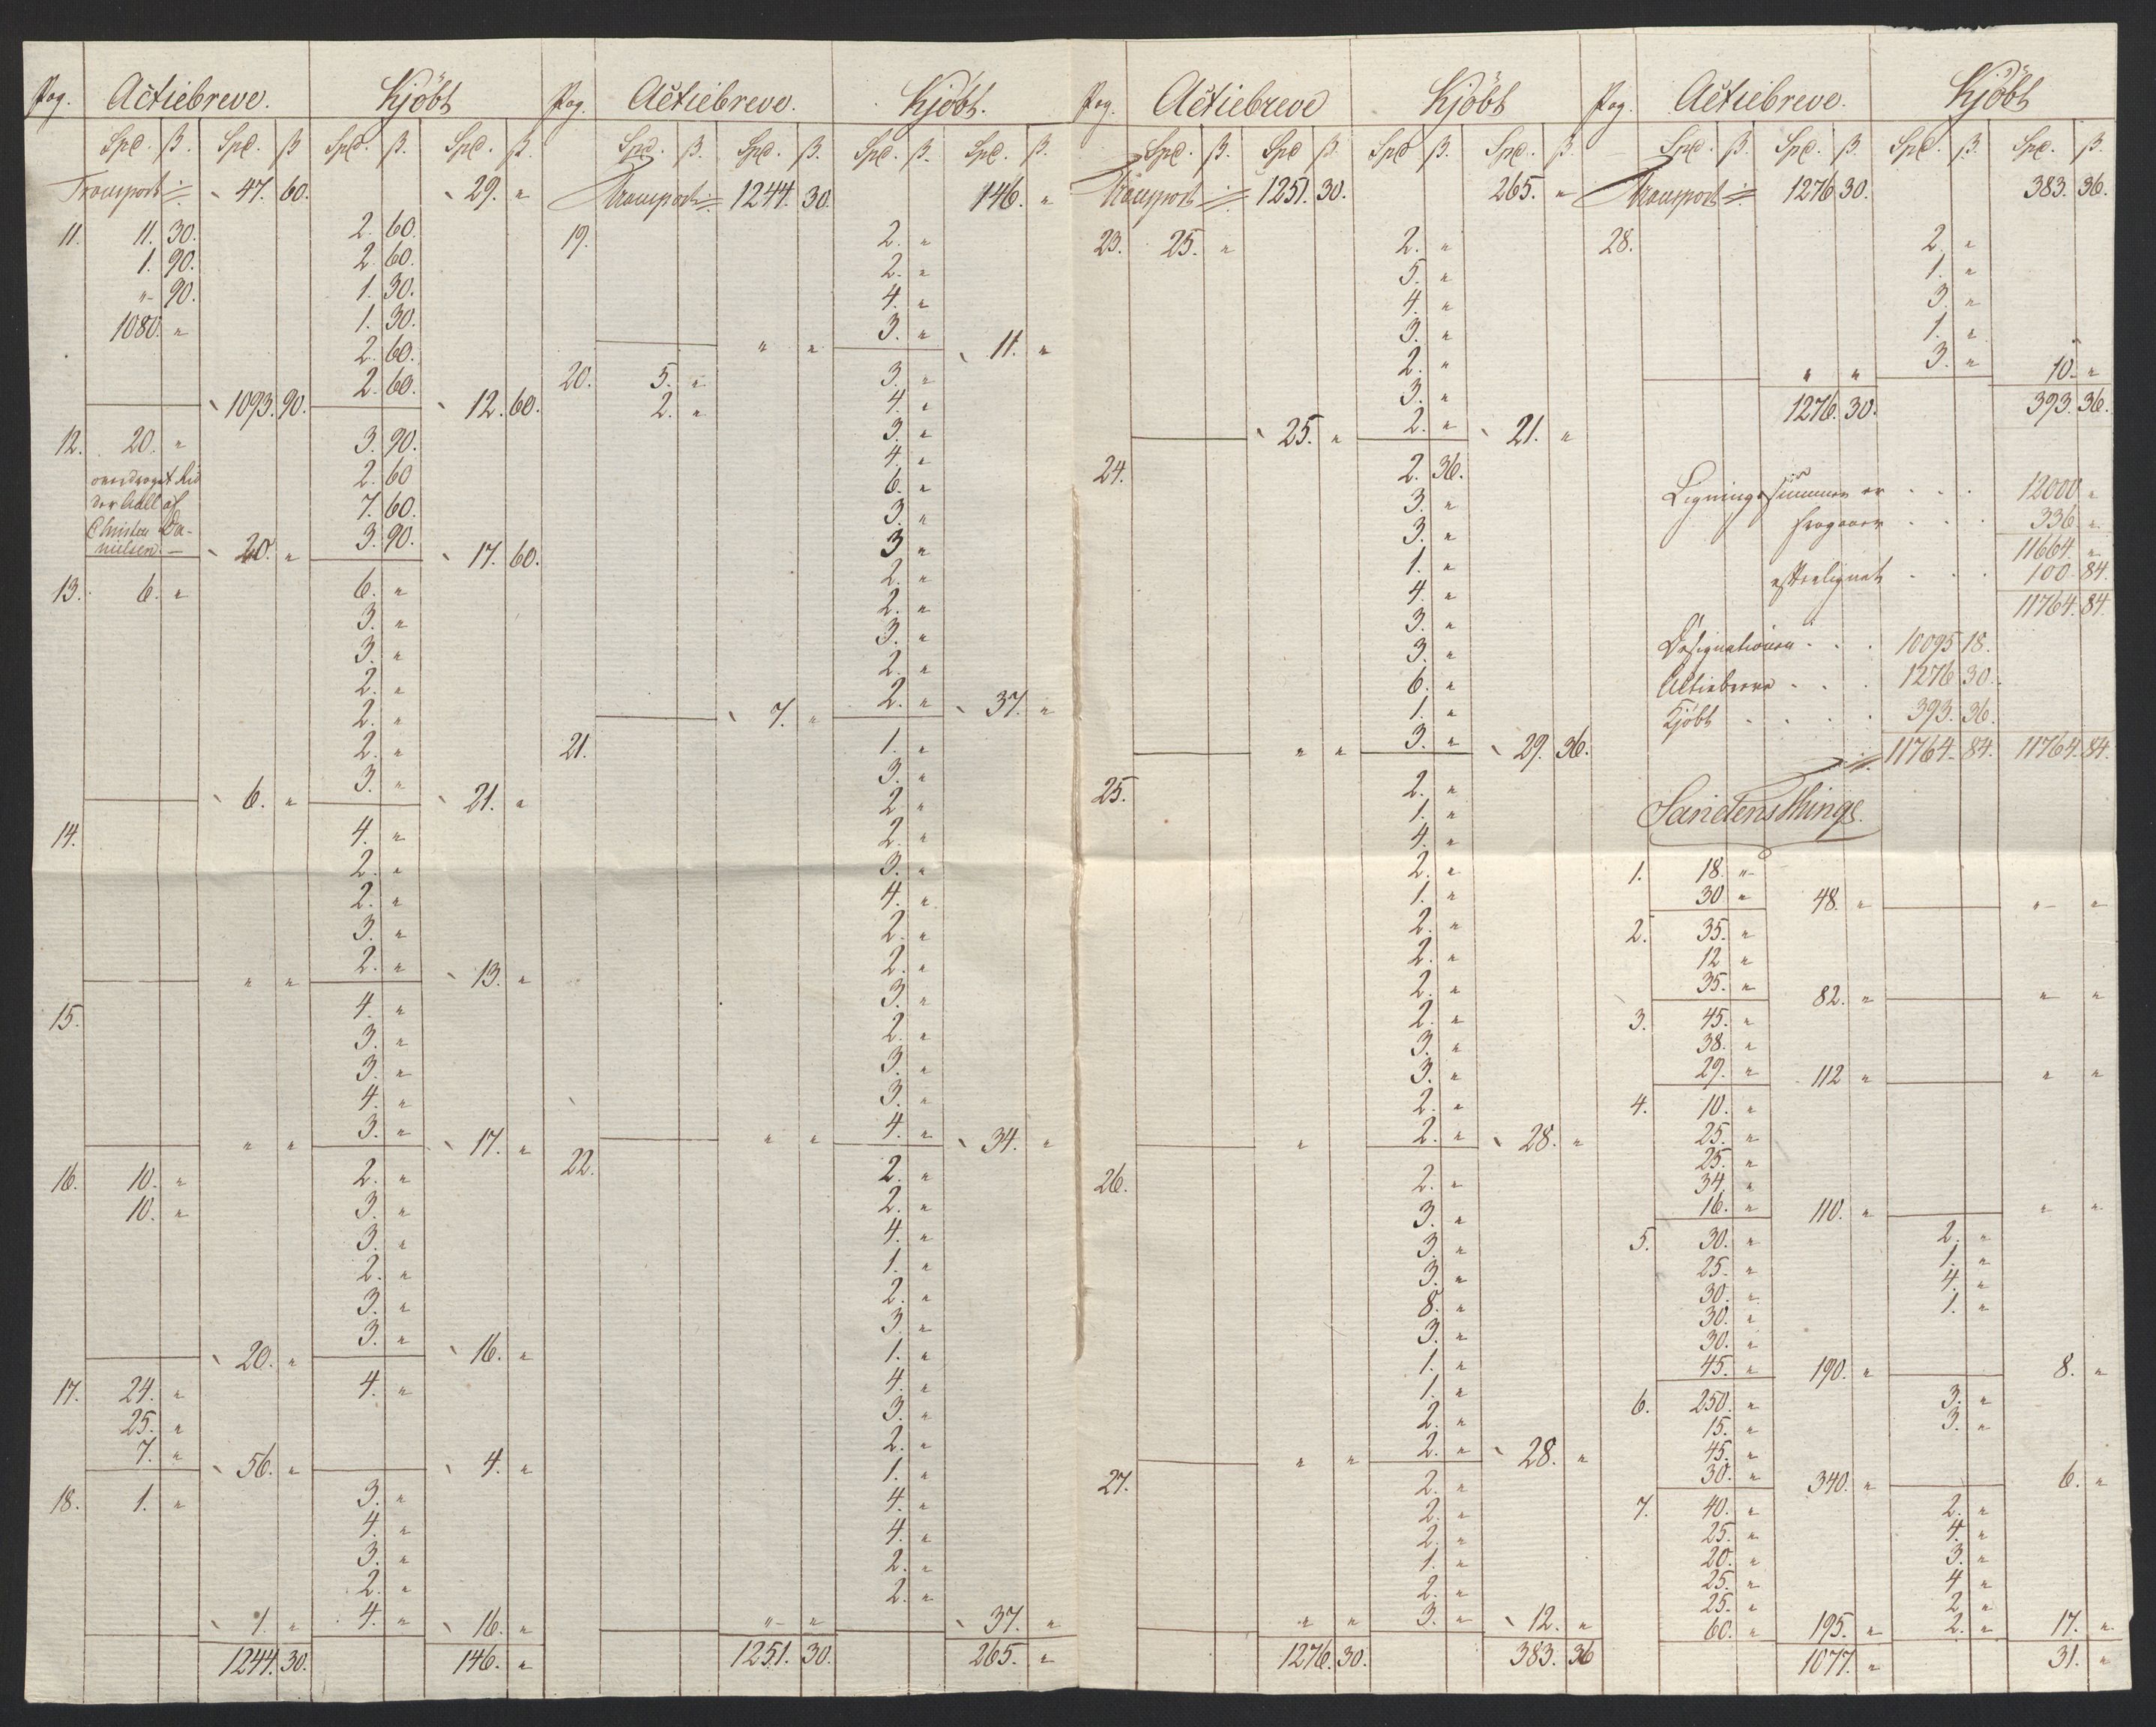 Pag. Actiebreve. Kjöbt
Spd. ß. Spd. ß Spd. ß. Spd. ß.
Transport 47. 60. 29. "
11. 11. 30. 2. 60.
1. 90. 2. 60.
" 90. 1. 30.
1080. " 1. 30.
2. 60.
2. 60.
1093. 90. 12. 60.
12. 20. " 3. 90.
overdraget 2. 60
7. 60.
Christen Da- 3. 90.
nielsen. 20. " 17. 60.
13. 6. " 6. "
3. "
3. "
2. "
2. "
2. "
3. "
6. " 21. "
14. 4. "
2. "
2. "
3. "
2. "
" " 13. "
15. 4. "
3. "
3. "
4. "
3. "
" " 17. "
16. 10. " 2. "
10. " 3. "
3. "
2. "
3. "
3. "
20. " 16. "
17. 24. " 4. "
25. "
7. "
56. " 4. "
18. 1. " 3. "
4. "
3. "
2. "
4. "
1. " 16. "
1244. 30. 146. "
Pag. Actiebreve. Kjöbt.
Spd. ß. Spd. ß. Spd. ß. Spd. ß.
Transport 1244. 30. 146. "
19. 2. "
2. "
4. "
3. "
" " 11. "
20. 5. " 3. "
2. " 4. "
3. "
4. "
6. "
3. "
3 "
2. "
2. "
3. "
2. "
2. "
7. " 37. "
21. 1. "
3. "
2 "
2. "
3. "
4. "
2. "
2. "
3. "
2. "
3. "
3. "
4. "
" " 34. "
22. 2. "
2. "
4. "
1. "
2. "
3. "
1. "
4. "
3. "
2. "
1. "
4. "
4. "
2. "
2. "
" " 37. "
1251. 30. 265. "
Pag. Actiebreve Kjöbt
Spd. ß. Spd ß. Spd ß. Spd. ß.
Transport 1251. 30. 265. "
23. 25. " 2. "
5. "
4. "
3. "
2. "
3. "
2. "
25. " 21. "
24. 2. 36.
3. "
3. "
1. "
4. "
3. "
3. "
6. "
1. "
3. "
" " 29. 36.
25. 2. "
1. "
4. "
2. "
1. "
2. "
2. "
2. "
2. "
3. "
3. "
2. "
2. "
" 28. "
26. 2. "
3. "
3. "
3. "
8. "
3. "
1. "
1. "
2. "
2. "
" " 28. "
27. 2. "
2. "
2. "
1. "
2. "
3. "
" " 12. "
1276. 30. 383. 36
Pag. Actiebreve. Kjöbt
Spd. ß. Spd. ß. Spd. ß. Spd. ß.
Transport 1276 30. 383. 36.
28. 2. "
1. "
3. "
1. "
3. "
" " 10. "
1276. 30. 393. 36.
Ligningssummen er . . . 12000 "
fragaaer . . . 336. "
11664. "
efterlignet . . . 100. 84.
11764. 84.
Designationen . . . 10095 18.
Actiebreve . . . 1276 30.
Kjöbt . . . . 393. 36.
11764. 84. 11764. 84.
Sandens Thingl.
1. 18. "
30 " 48. " " "
2. 35. "
12 "
35. " 82. " " "
3. 45. "
38. "
29. " 112 " " "
4. 10. "
25. "
25. "
34. "
16. " 110. " " "
5. 30. " 2. "
25. " 1. "
30. " 4. "
30. " 1. "
30. "
45. " 190. " 8. "
6. 250. " 3. "
15. " 3. "
45. "
30. " 340. " 6. "
7. 40. " 2. "
25. " 4. "
20. " 3. "
25. " 4. "
25. " 2. "
60. " 195. " 2. " 17. "
1077. " 31. "